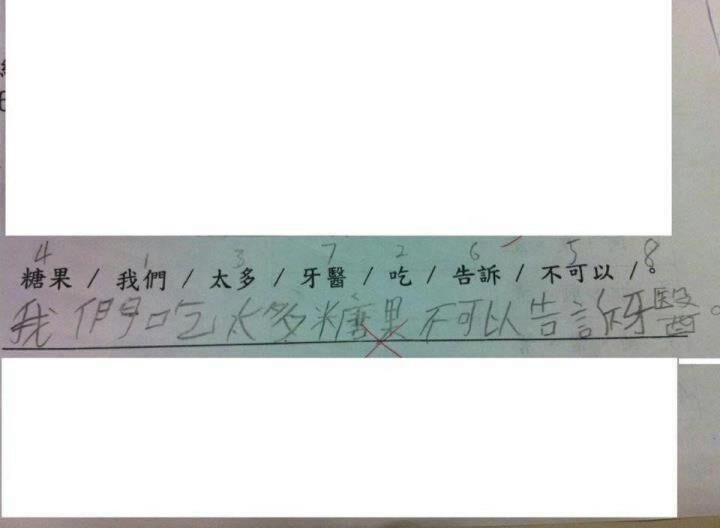 4 1 3 7 2 6 5 8
糖果 / 我們 / 太多 / 牙醫 / 吃 / 告訴 / 不可以 / 。
我們吃太多糖果不可以告訴牙醫。